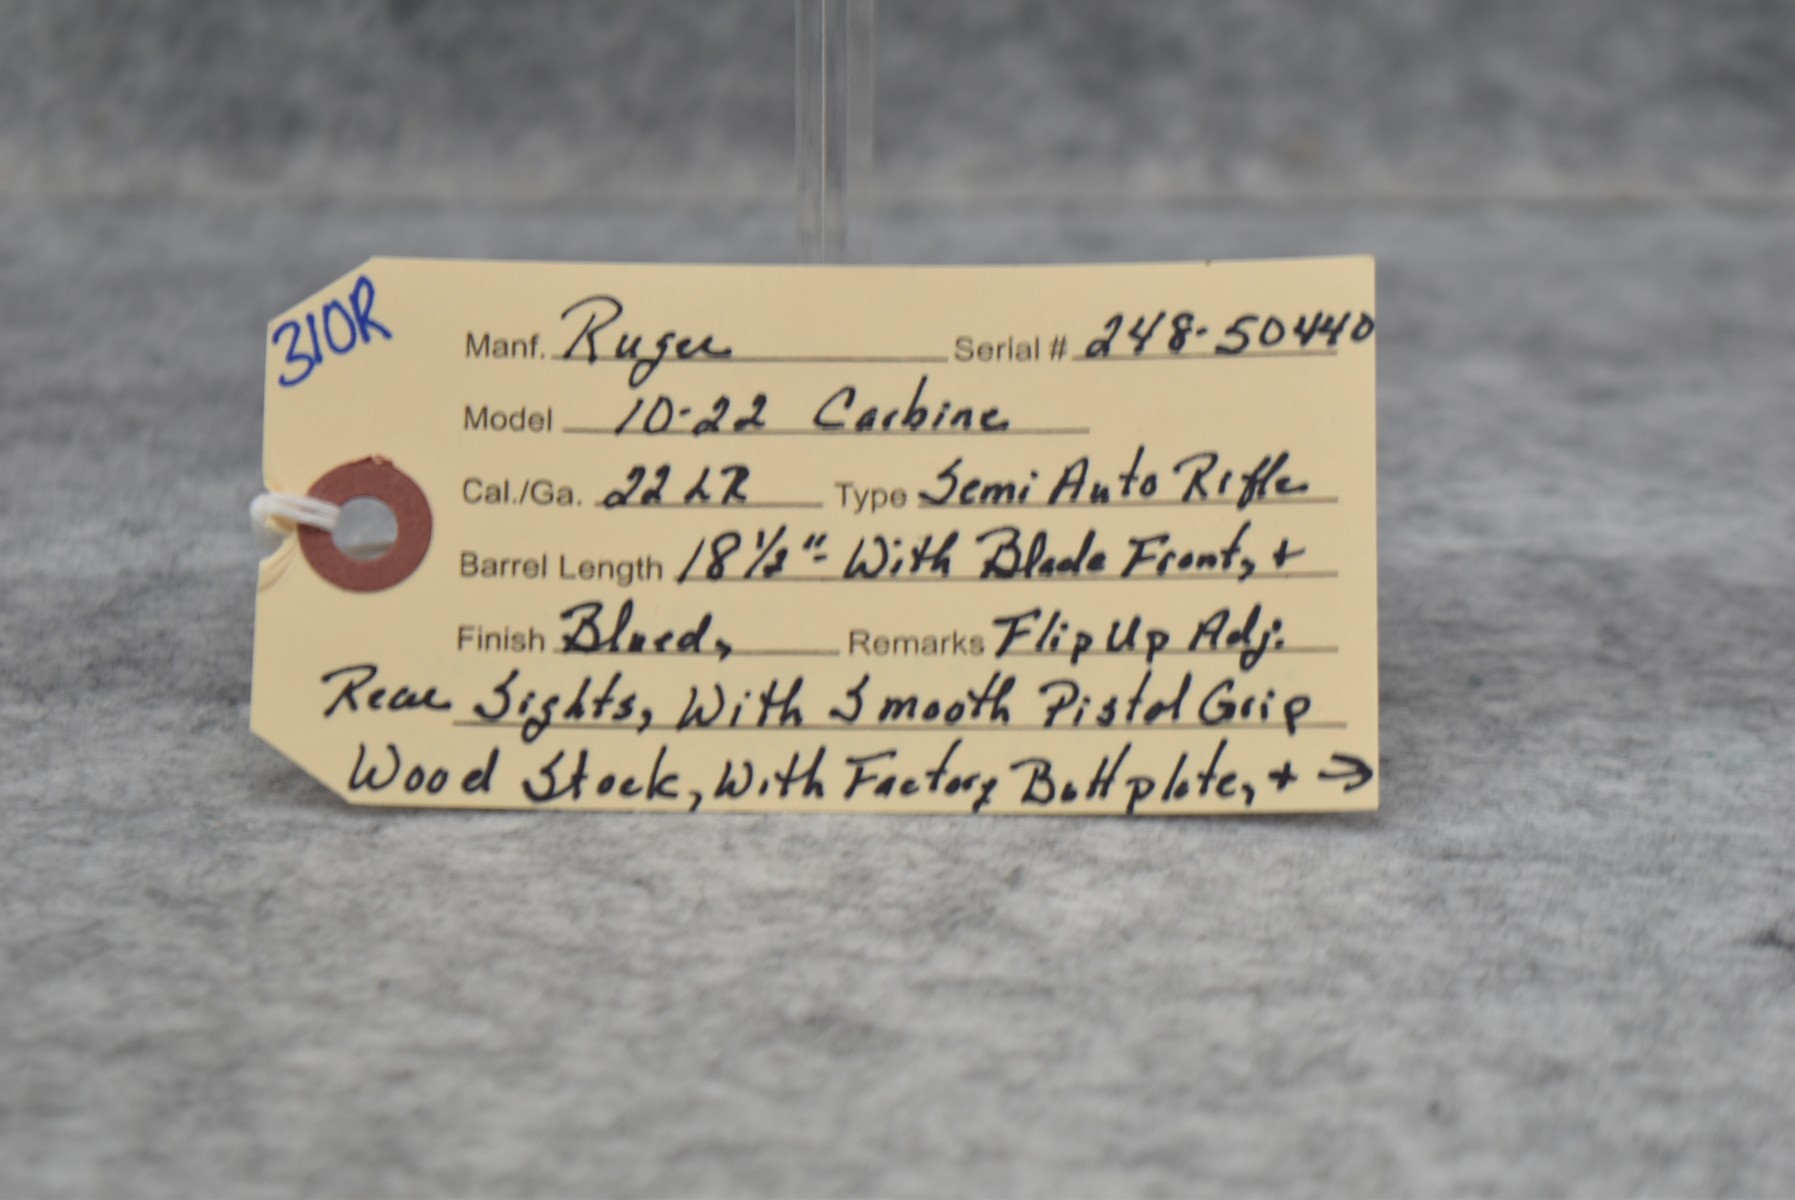 310R
Manf. Ruger Serial # 248-50440
Model 10-22 Carbine
Cal./Ga. 22 LR Type Semi Auto Rifle
Barrel Length 18 1/2" - With Blade Front, +
Finish Blued, Remarks Flip Up Adj.
Rear Sights, With Smooth Pistol Grip
Wood Stock, With Factory Buttplate, + →